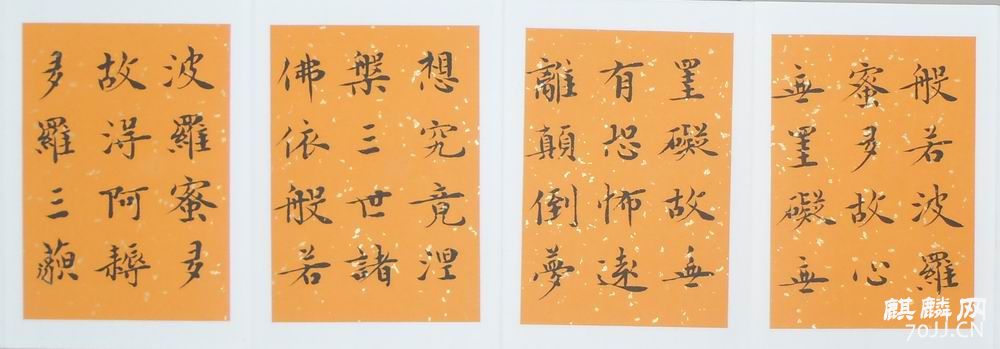 般若波羅
蜜多故心
無罣礙無
罣礙故無
有恐怖遠
離顛倒夢
想究竟涅
槃三世諸
佛依般若
波羅蜜多
故得阿耨
多羅三藐
麒麟网
70JJ.CN